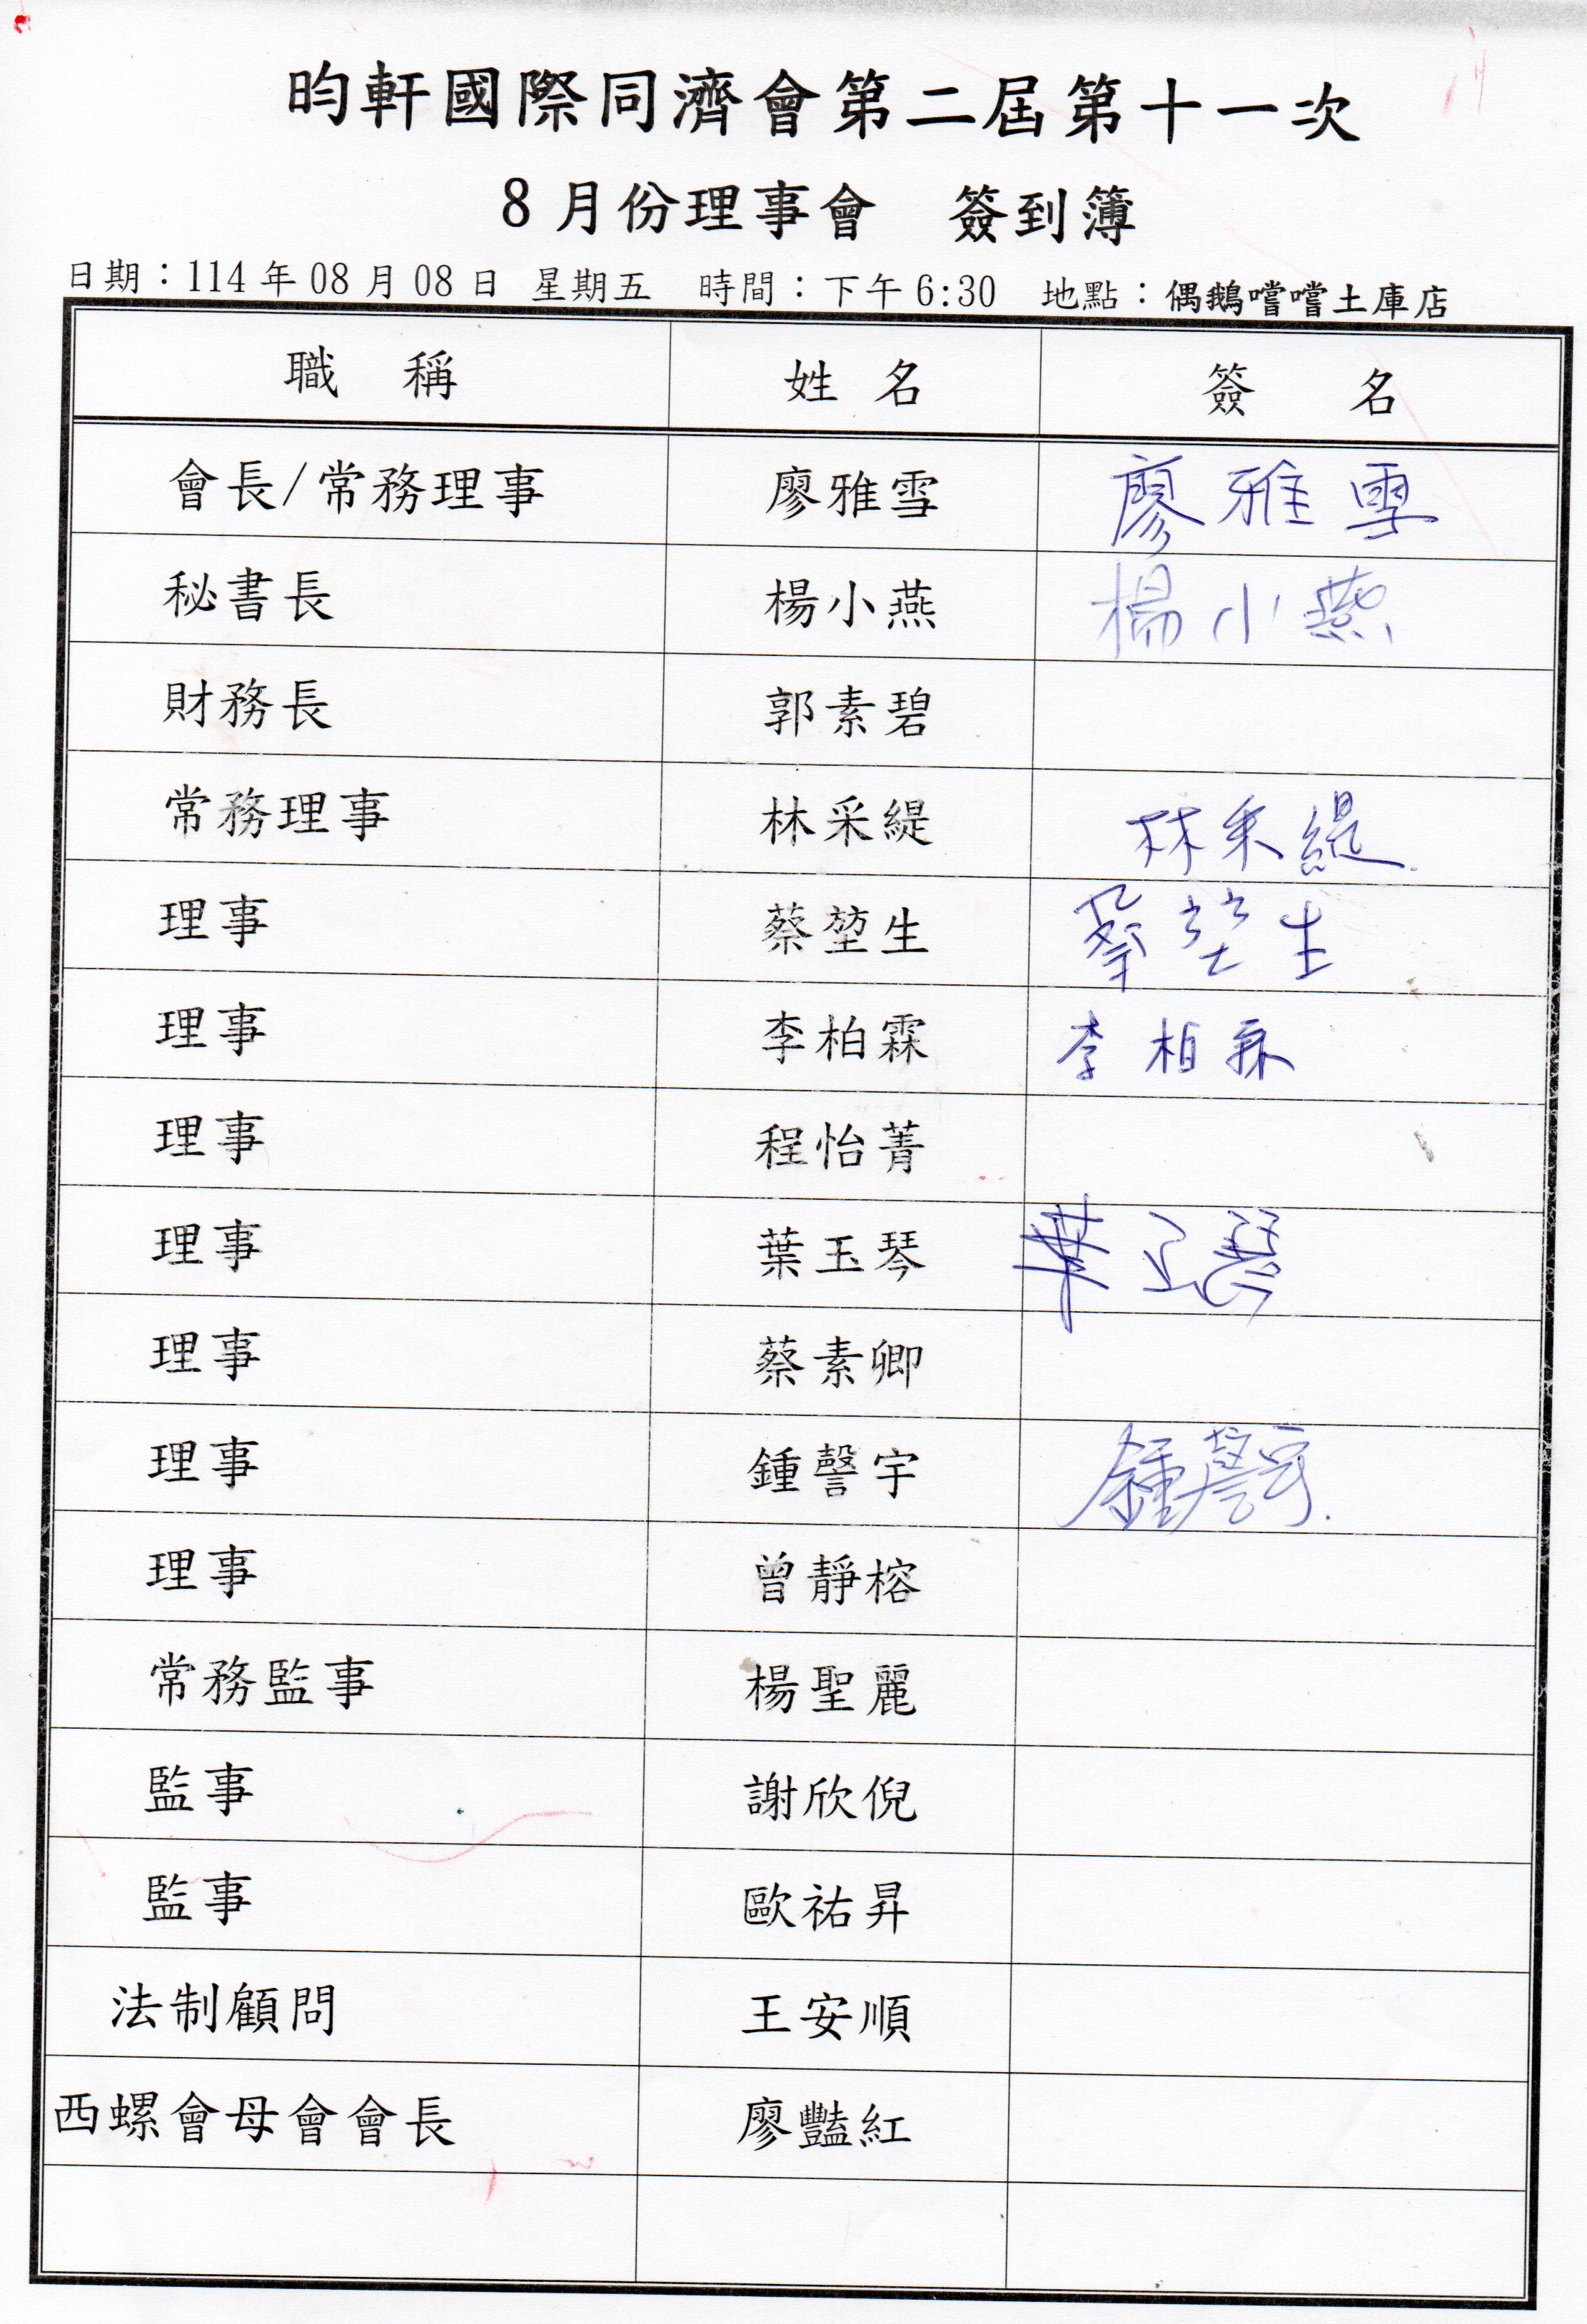 昀軒國際同濟會第二屆第十一次
8月份理事會 簽到簿
日期：114年08月08日 星期五 時間：下午6:30 地點：偶鵝嚐嚐土庫店
職 稱 姓 名 簽 名
會長/常務理事 廖雅雪 廖雅雪
秘書長 楊小燕 楊小燕
財務長 郭素碧
常務理事 林采緹 林采緹
理事 蔡堃生 蔡堃生
理事 李柏霖 李柏霖
理事 程怡菁
理事 葉玉琴 葉玉琴
理事 蔡素卿
理事 鍾謦宇 鍾謦宇
理事 曾靜榕
常務監事 楊聖麗
監事 謝欣倪
監事 歐祐昇
法制顧問 王安順
西螺會母會會長 廖豔紅